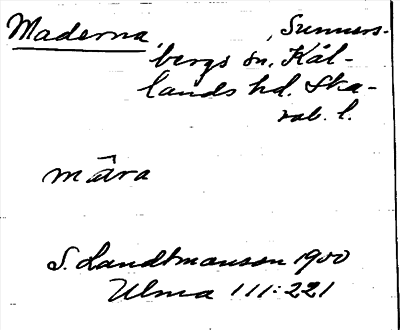 Maderna, Sunners-
bergs sn. Kål-
lands hd. Ska-
rab. l.
mâra
S. Landtmanson 1900
Ulma 111:221